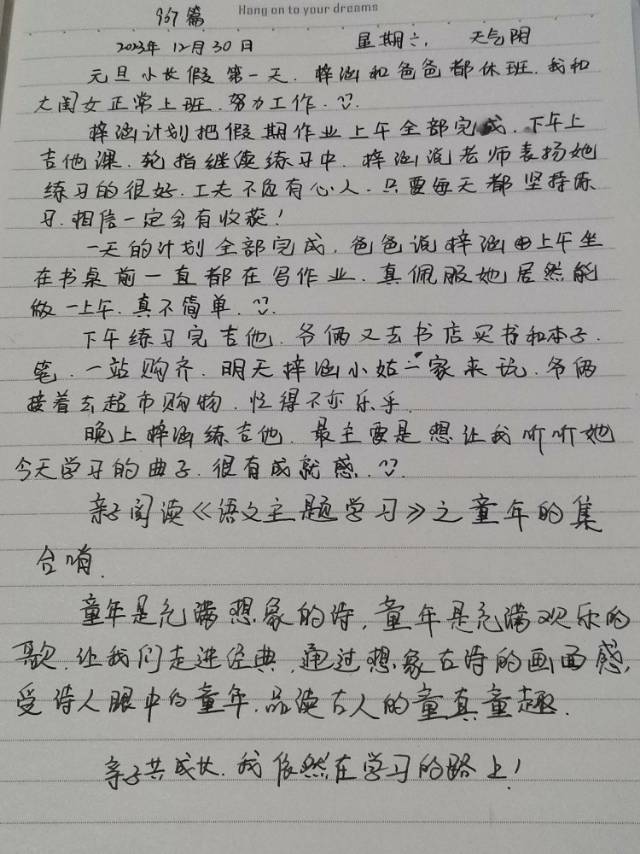 Hang on to your dreams
967篇
2023年12月30日 星期六, 天气阴
元旦小长假第一天.梓涵和爸爸都休班.我和
大闺女正常上班.努力工作.
梓涵计划把假期作业上午全部完成.下午上
吉他课.轮指继续练习中.梓涵说老师表扬她
练习的很好.工夫不负有心人.只要每天都坚持练
习.相信一定会有收获!
一天的计划全部完成.爸爸说梓涵由上午坐
在书桌前一直都在写作业.真佩服她居然能
做一上午.真不简单.
下午练习完吉他.爷俩又去书店买书和本子.
笔.一站购齐.明天梓涵小姑一家来玩.爷俩
接着去超市购物.忙得不亦乐乎.
晚上梓涵练吉他.最主要是想让我听听她
今天学习的曲子.很有成就感.
亲子阅读《语文主题学习》之童年的集
合哨.
童年是充满想象的诗,童年是充满欢乐的
歌.让我们走进经典.通过想象古诗的画面感,
受诗人眼中的童年.品读古人的童真童趣.
亲子共成长.我依然在学习的路上!